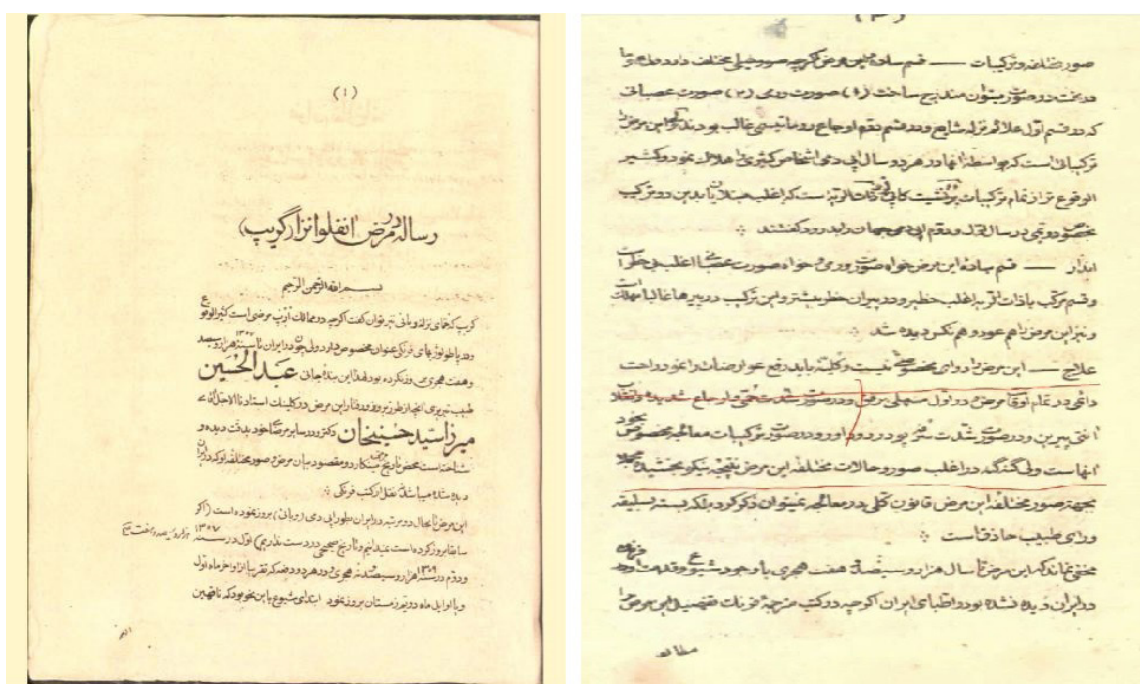 (۱)
رساله در مرض انفلوانزا (گریپ)
بسم الله الرحمن الرحیم
گریپ که حمای نزله وبائی نیز توان گفت اگرچه در ممالک اروپ مرضی است کثیر الوقوع
و در پاطولوژیهای فرنگی عنوان مخصوص دارد ولی چون در ایران تا سنه ۱۳۰۷ هزار و سیصد
و هفت هجری بروز نکرده بود لهذا این بنده جانی عبدالحسین
طبیب تبریزی آنچه از طرز بروز و رفتار این مرض در کلینیک استاد
میرزا سید حسینخان دکتر و در سایر مرضا خود بدقت دیده و
شناخته است محض تاریخ مینگارد و مقصود بیان مرض و صور مختلفه او که در ایران
دیده شده میباشد نه نقل از کتب فرنگی
این مرض تا بحال دو مرتبه در ایران بطور اپی دمی (وبائی) بروز نموده است (اگر
سابقا بروز کرده است نمیدانیم و تاریخ صحیحی در دست نداریم) اول در سنه ۱۳۰۷ هزار و سیصد و هفت
و دوم در سنه ۱۳۰۹ هزار و سیصد و نه هجری و در هر دو دفعه تقریبا از اواخر ماه اول
و یا اوایل ماه دویم زمستان بروز نمود ابتدای شیوع باین نحو بود که
صور مختلفه و ترکیبات — قسم ساده این مرض اگرچه صور خیلی مختلف دارد ولی
در تحت دو صورت میتوان مندرج ساخت (۱) صورت ریوی (۲) صورت عصبانی
که در قسم اول علائم نزله شایع و در قسم دوم اوجاع روماتیسمی غالب بودند این مرض را
ترکیباتی است که بواسطه آنها در هر دو سال اپی دمی اشخاص کثیری را هلاک نمود و کثیر
الوقوع تر از تمام ترکیبات برنشیت کاپیلر و ذات الریه است که اغلب مبتلایان بدین دو ترکیب
بخصوص در سال اول و دوم اپی دمی جهان را بدرود گفتند
انذار — قسم ساده این مرض خواه صورت ریوی و خواه صورت عصبی اغلب بی خطر است
و قسم مرکب با ذات الریه اغلب خطیر و در پیران خطر بیشتر و این ترکیب در پیرها غالبا مهلک است
و نیز این مرض را هم عود و هم نکس دیده شد
علاج — این مرض را دوای مخصوصی نیست و کلیة باید رفع عوارضات را نمود و راحت
دائمی در تمام اوقات مرض و در اول مسهلی و در صورت شدت حمی و اوجاع شدیده
انتی پیرین و در صورت شدت سرفه پودر دوور و در صورت ترکیبات معالجه مخصوص بخود
آنها است ولی گنه گنه در اغلب صور و حالات مختلفه این مرض نتیجه نیکو بخشیده
بجهة صور مختلفه این مرض قانون کلی در معالجه نمیتوان ذکر کرد بلکه بسته بسلیقه
و رای طبیب حاذق است
مخفی نماند که این مرض تا سال هزار و سیصد و هفت هجری با وجود شیوع و قدمت در اروپا
در ایران دیده نشده بود و اطبای ایران اگرچه در کتب مترجمه فرنگ تفصیل این مرض را